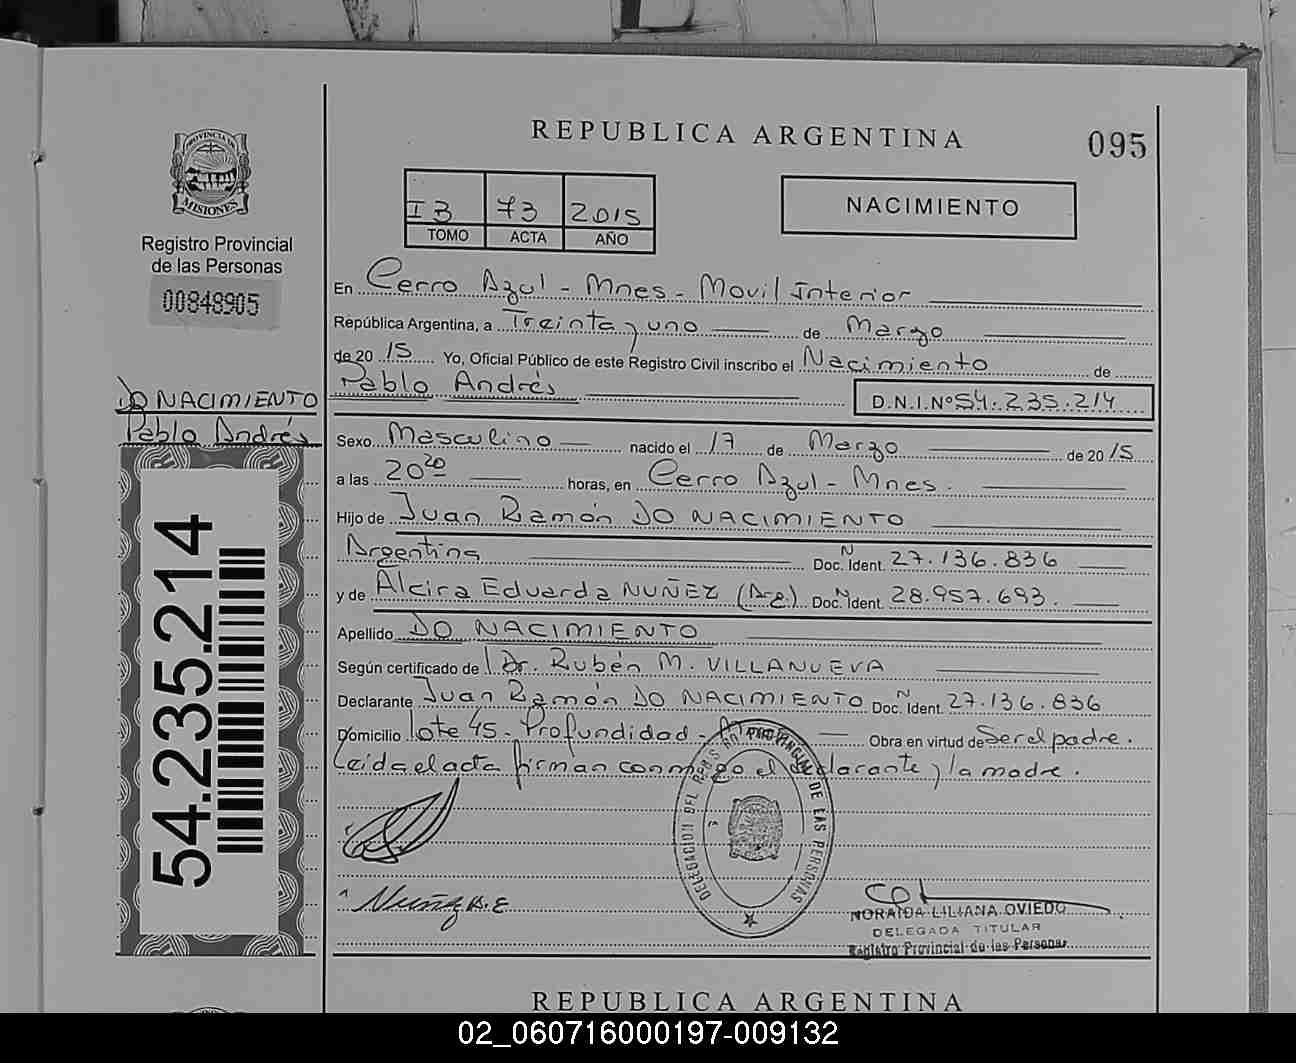 REPUBLICA ARGENTINA
095
PROVINCIA DE
MISIONES
Registro Provincial
de las Personas
00848905
I B 73 2015
TOMO ACTA AÑO
NACIMIENTO
En Cerro Azul - Mnes - Movil Interior
República Argentina, a Treinta y uno de Marzo
de 20 15 Yo, Oficial Público de este Registro Civil inscribo el Nacimiento de
Pablo Andrés D.N.I.Nº 54.235.214
DO NACIMIENTO
Pablo Andrés
Sexo Masculino nacido el 17 de Marzo de 20 15
a las 20 20 horas, en Cerro Azul - Mnes.
Hijo de Juan Ramón DO NACIMIENTO
Argentina Doc. N Ident. 27.136.836
y de Alcira Eduarda NUÑEZ (Arg) Doc. N Ident. 28.957.693.
Apellido DO NACIMIENTO
Según certificado de Dr. Rubén M. VILLANUEVA
Declarante Juan Ramón DO NACIMIENTO Doc. N Ident. 27.136.836
Domicilio lote 45 - Profundidad - Obra en virtud de Ser el padre.
Leida el acta firman conmigo el declarante y la madre.
54.235.214
DELEGACION DEL REGISTRO PROVINCIAL DE LAS PERSONAS
Nuñez A.E
NORAIDA LILIANA OVIEDO
DELEGADA TITULAR
Registro Provincial de las Personas
REPUBLICA ARGENTINA
02_060716000197-009132